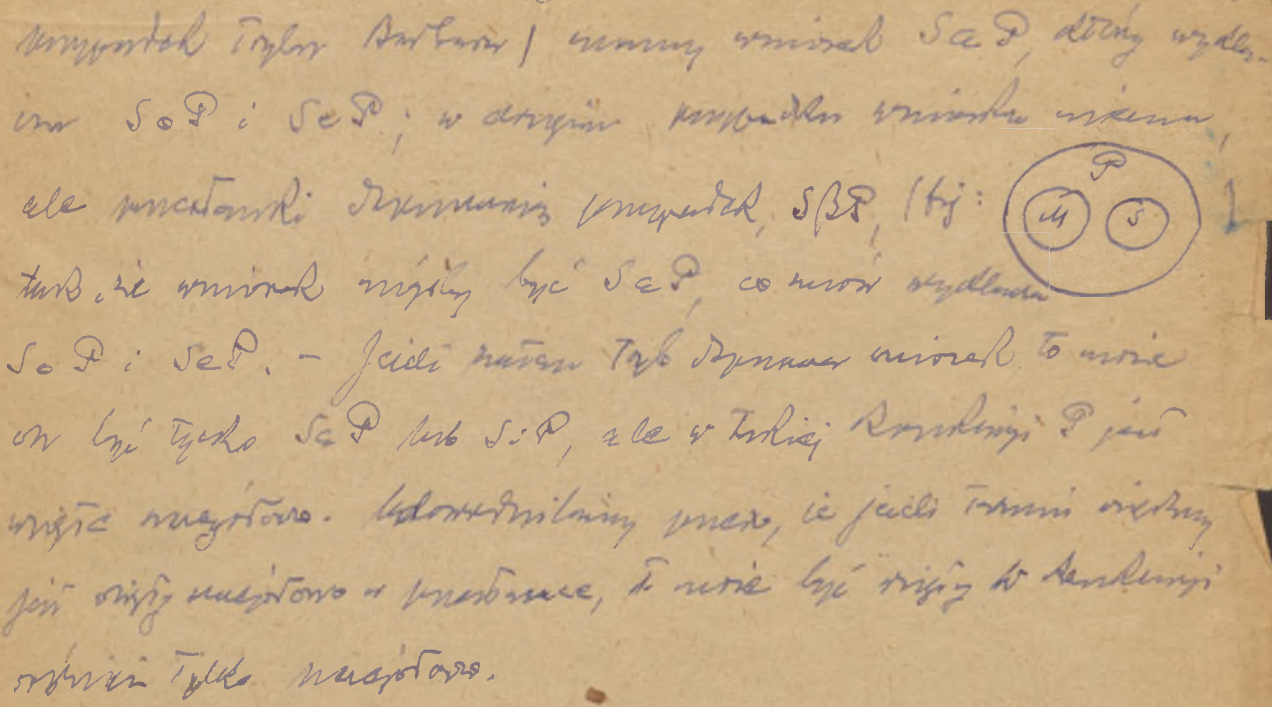 przypadek trybu Barbara / mamy wniosek SaP, który wyklu-
cza SoP i SeP; w drugim przypadku wniosku niema,
ale przesłanki dopuszczają przypadek, SβP, (tj: P M S )
tak, że wniosek mógłby być SaP, co znów wyklucza
SoP i SeP. – Jeżeli zatem tryb daje wniosek to może
on być tylko SaP lub SiP, ale w takiej konkluzji P jest
wzięte szczegółowo. Udowodniliśmy przez, że jeżeli termin większy
jest wzięty szczegółowo w przesłance, to może być wzięty w konkluzji
również tylko szczegółowo.